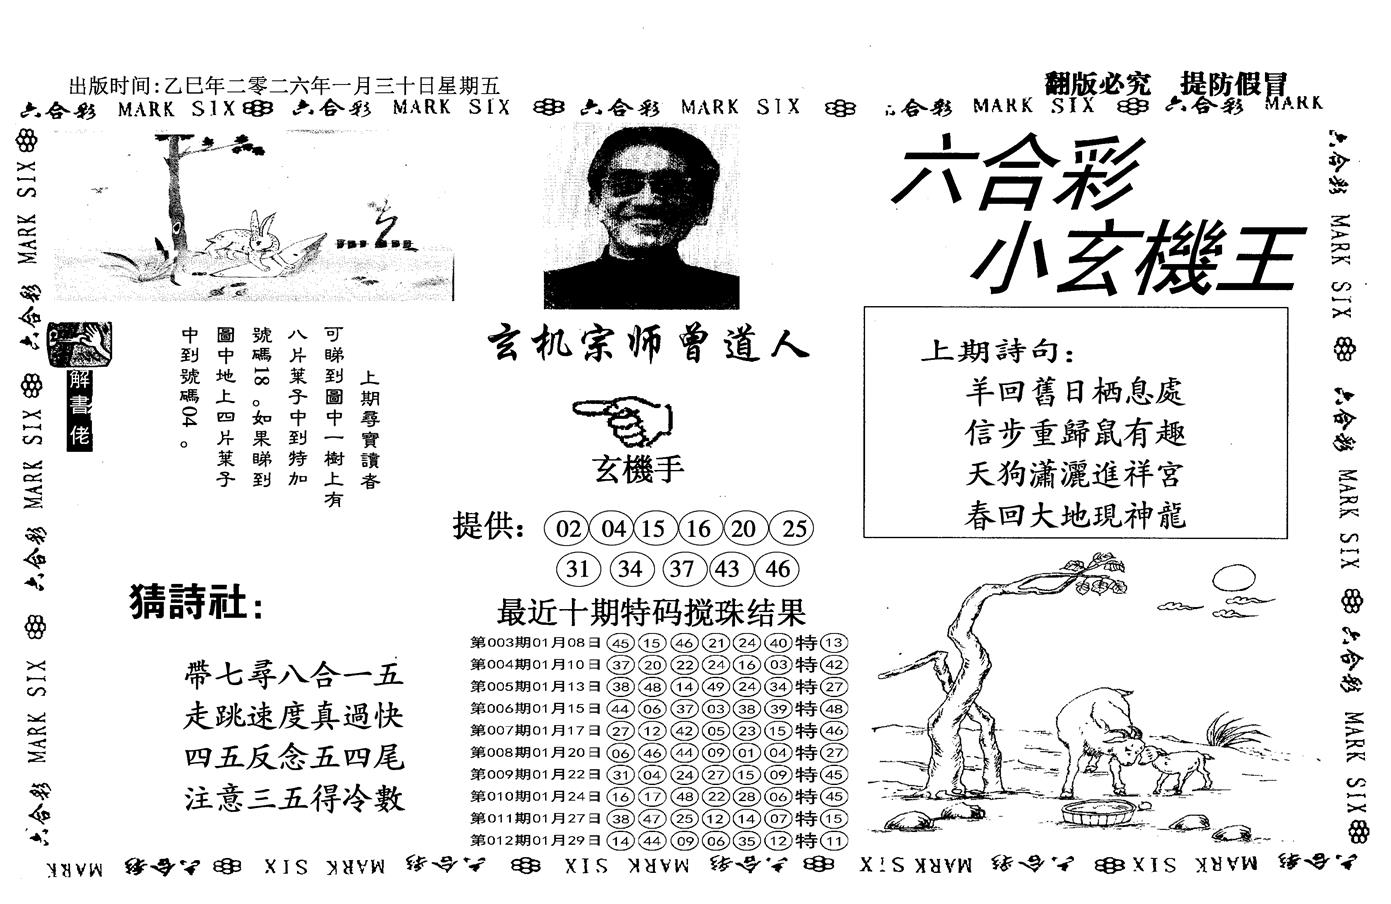 出版时间:乙巳年二零二六年一月三十日星期五
翻版必究 提防假冒
六合彩 MARK SIX 六合彩 MARK SIX 六合彩 MARK SIX 六合彩 MARK SIX 六合彩 MARK
六合彩
小玄機王
上期尋寶讀者
可睇到圖中一樹上有
八片葉子中到特加
號碼18。如果睇到
圖中地上四片葉子
中到號碼04。
解書佬
玄机宗师曾道人
玄機手
提供: 02 04 15 16 20 25
31 34 37 43 46
上期詩句:
羊回舊日栖息處
信步重歸鼠有趣
天狗瀟灑進祥宮
春回大地現神龍
猜詩社:
帶七尋八合一五
走跳速度真過快
四五反念五四尾
注意三五得冷數
最近十期特码搅珠结果
第003期01月08日 45 15 46 21 24 40 特 13
第004期01月10日 37 20 22 24 16 03 特 42
第005期01月13日 38 48 14 49 24 34 特 27
第006期01月15日 44 06 37 03 38 39 特 48
第007期01月17日 27 12 42 05 23 15 特 46
第008期01月20日 06 46 44 09 01 04 特 27
第009期01月22日 31 04 24 27 15 09 特 45
第010期01月24日 16 17 48 22 28 06 特 45
第011期01月27日 38 47 25 12 14 07 特 15
第012期01月29日 14 44 09 06 35 12 特 11
六合彩 MARK SIX 六合彩 MARK SIX 六合彩 MARK SIX
六合彩 MARK SIX 六合彩 MARK SIX 六合彩 MARK SIX
六合彩 MARK SIX 六合彩 MARK SIX 六合彩 MARK SIX 六合彩 MARK SIX 六合彩 MARK